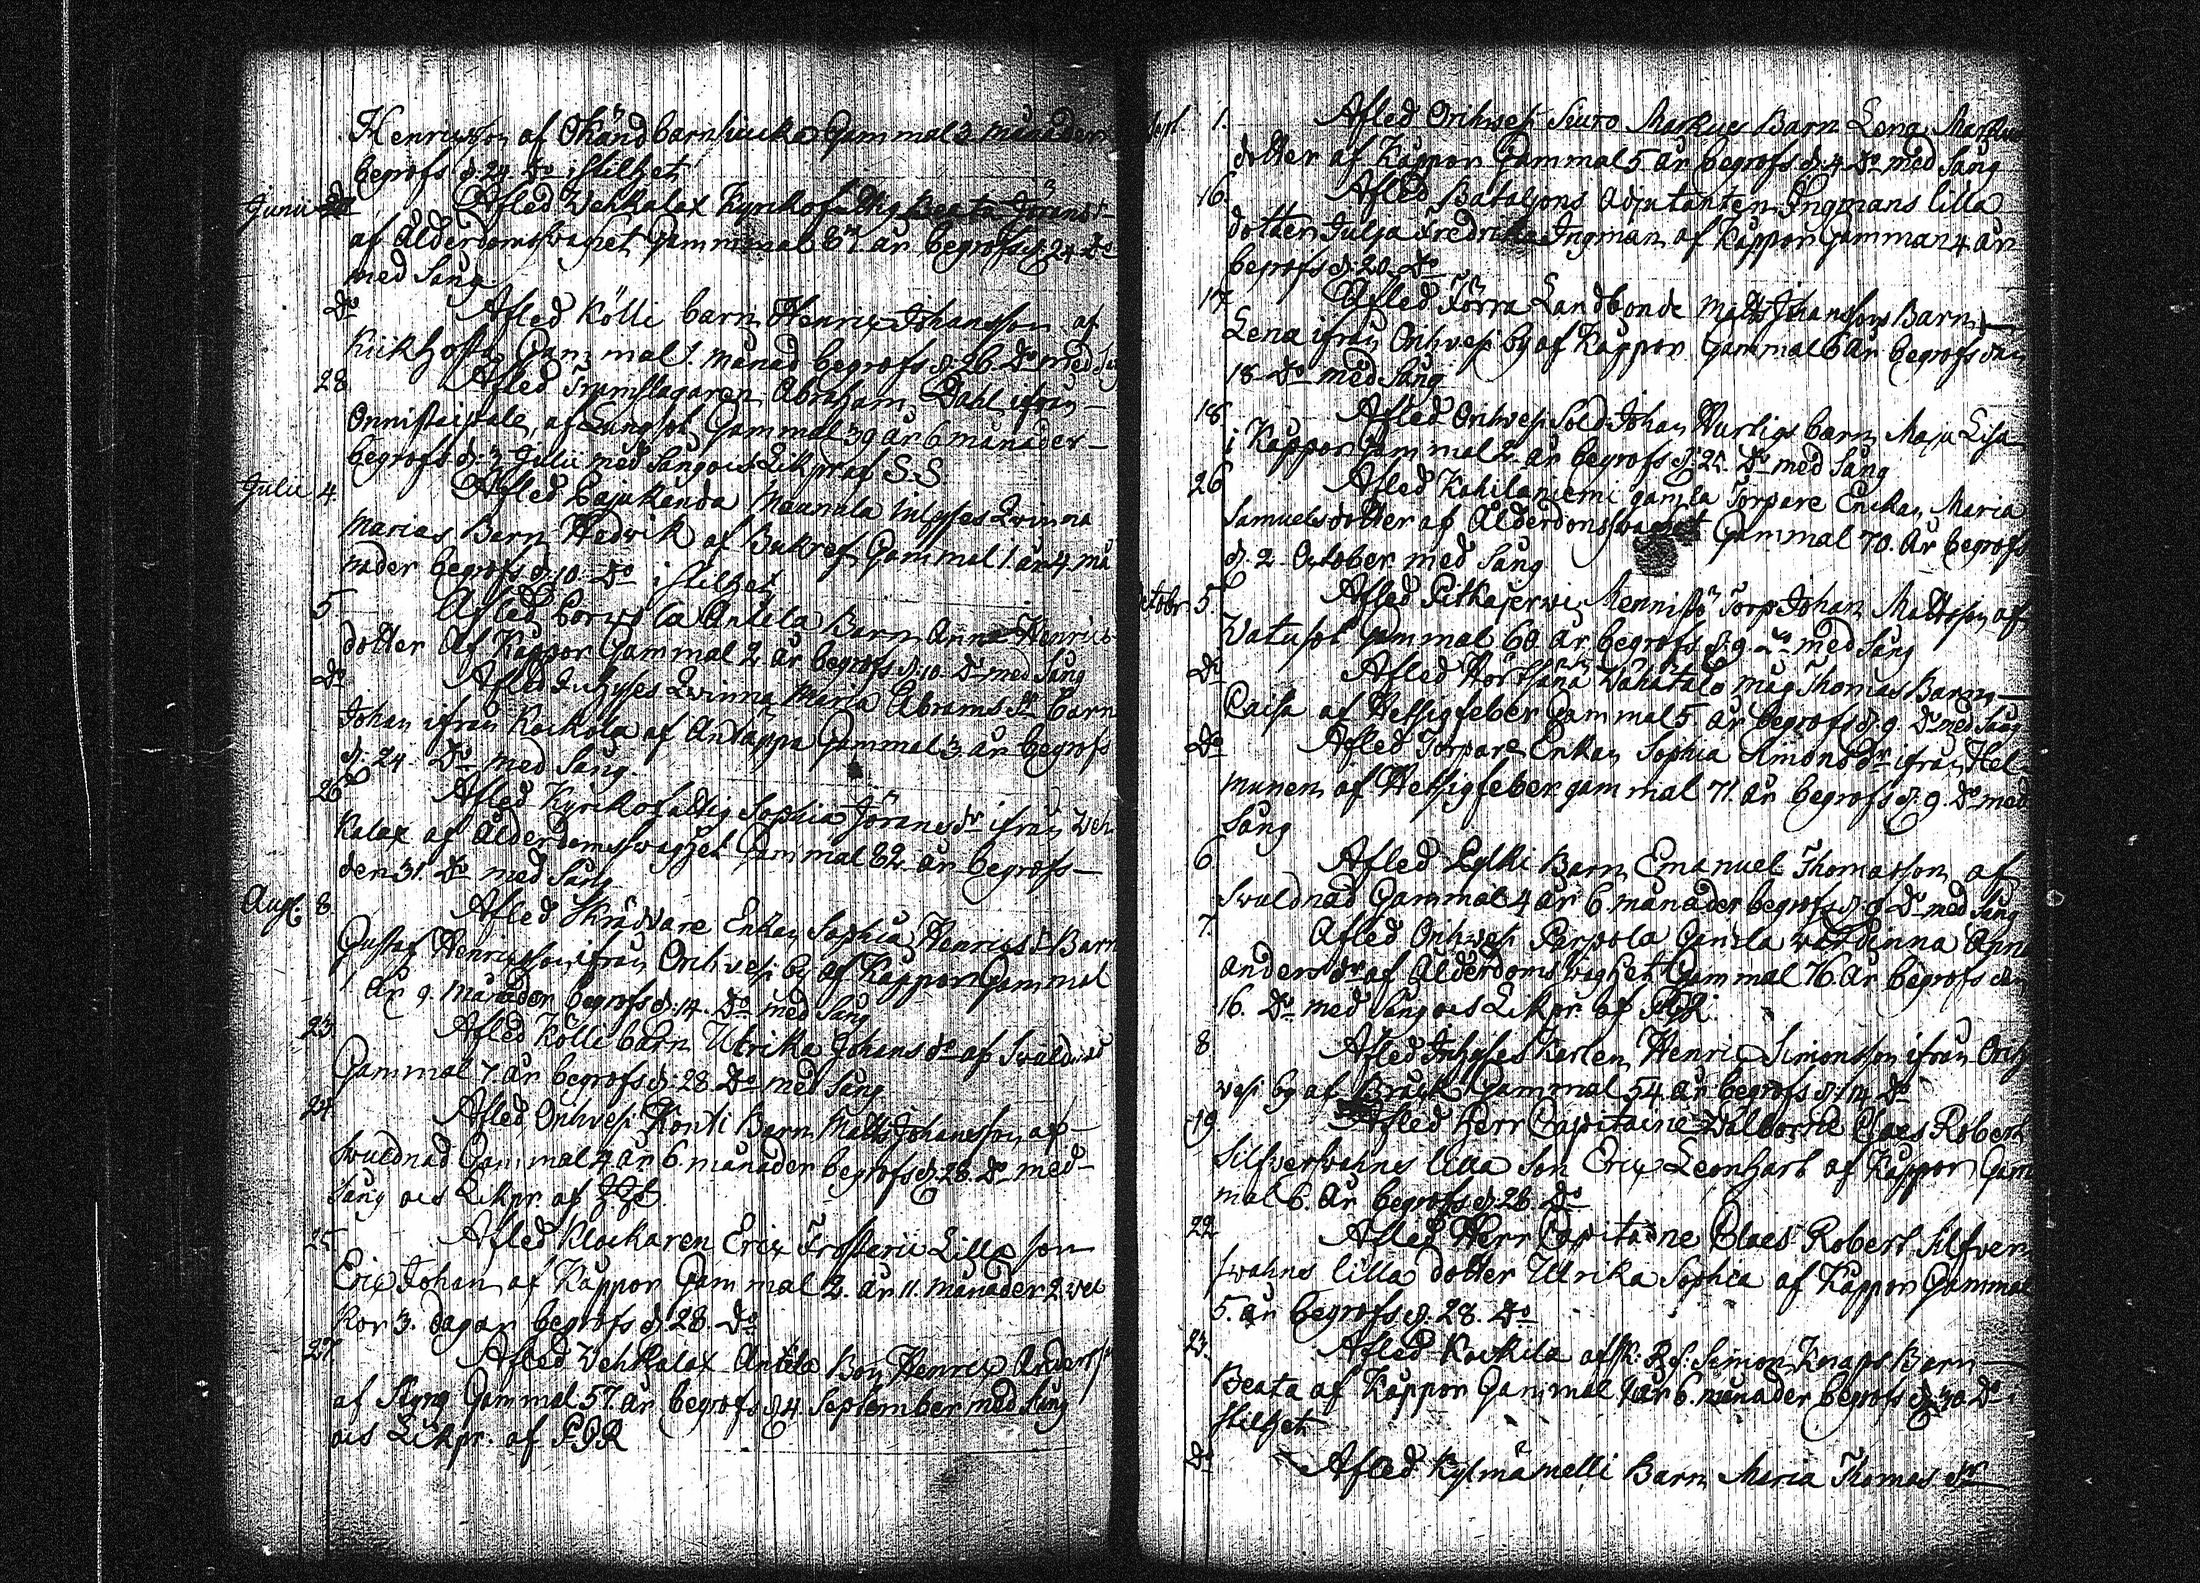 Henricsson af Okänd barnsiuka Gammal 3 månader
begrofs d: 24 Do i stillhet
Junii Afled Wehkalax Kyrckofattig Beata Jörans dr
af Ålderdomswaghet Gammal år begrofs d 24 Do
med Sång
Do Afled Kölli barn Henrix Johansson af
Kiikhosta Gammal 1. månad begrofs d: 26. Do med
28 Afled Trumslagaren Abraham Dahl ifrån
Onnistaipale, af Lungsot Gammal 39 år 6 månader
begrofs d: 3 Julii med Sång och Likpr. af S. S.
Julii 4. Afled Pajukanda Meunula Inhyses Qwinna
Marias Barn Hedwik af Bukref Gammal 1. år 4 må
nader begrofs d: 10. Do i stillhet
5 Afled Antila Barn Anna Henrics
dotter Af Kåppor Gammal 2 år begrofs d: 10. Do med Sång
Do Afled Inhyses Qwinna Maria Abrams dr barn
Johan ifrån Kockola af Andtäppa Gammal 3 år begrofs
d: 24. Do med Sång.
26 Afled Kyrckofattig Sophia Jörans dr ifrån Weh
kalax af Ålderdomswaghet Gammal 82 år begrofs
den 31. Do med Sång
Aug. 8 Afled Skräddare Enkan Sophia Henrics dr Barn
Gustaf Henricsson ifrån Orihvesi by af Kåppor Gammal
År 9. månader begrofs d: 14. Do med Sång
23 Afled Kölli barn Ulrika Johans dr af Swuldnad
Gammal 7. år begrofs d: 28. Do med Sång
24 Afled Orihvesi Konti Barn Matts Johansson af
Swuldnad Gammal 4 år 6 månader begrofs d: 28. Do med
Sång och Likpr. af
25 Afled Klockaren Eric Frosterii Lilla son
Eric Johan af Kåppor Gammal 2. år 11. månader 2. wec
kor 3. dagar begrofs d 28. Do
27. Afled Wehkalax Antila Bon Henrix Andersson
af Styng Gammal 57. år begrofs d 4. September med Sång
och Likpr. af P I R
Sept. 1. Afled Orihvesi Suuro Markus Barn Lena Markus
dotter af Kåppor Gammal 5 år begrofs d: 4 Do med Sång
16. Afled Bataljons Adjutanten Ingmans lilla
dotter Julia Fredrika Ingman af Kåppor Gammal 4 år
begrofs d: 20. Do
17 Afled Förra Landbonde Matts Johanssons Barn
Lena ifrån Orihvesi by af Kåppor Gammal 6 år begrofs dan
18 Do med Sång
18 Afled Orihvesi Sold. Johan Hurtigs barn Maja Lisa
i Kåppor Gammal 2 år begrofs d: 25. Do med Sång
26 Afled Kahilaniemi gamla Torpare Enckan Maria
Samuelsdotter af Ålderdomswaghet Gammal 70. år begrofs
d. 2. October med Sång
October 5 Afled Pitkajerwi Mennistö Torp. Johan Mattsson af
Watusot Gammal 60. år begrofs d: 9 Do med Sång
Do Afled Wåhätalo måg Thomas Barn
Caisa af Hetsigfeber Gammal 5. år begrofs d: 9. Do med Sång
Do Afled Torpare Enkan Sophia Simons dr ifrån Hel
munen af Hetsigfeber gammal 71 år begrofs d: 9 Do med
Sång
6 Afled Eylki Barn Emanuel Thomasson af
Swuldnad Gammal 4 år 6 månader begrofs d: 9 Do med Sång
7. Afled Orihvesi Perpola Gamla wärdinna Anna
Anders dr af Ålderdoms waghet Gammal 76. år begrofs den
16. Do med Sång och Likpr. af P I R
8 Afled Inhyses karlen Henric Simonsson ifrån Orih
vesi by af Bråck Gammal 54. år begrofs d: 14 Do
19. Afled Herr Capitaine Wälborne Claes Robert
Silfverswahns lilla Son Eric Leonhart af Kåppor Gam
mal 6. år begrofs d: 26. Do
22 Afled Herr Capitaine Claes Robert Silfver
swahns lilla dotter Ulrika Sophia af Kåppor Gammal
5. år begrofs d. 28. Do
23. Afled Kockila Simon Knaps Barn
Beata af Kåppor Gammal år 6. månader begrofs d 30. Do i
stillhet
Do Afled Kylmämelli Barn Maria Thomas dr